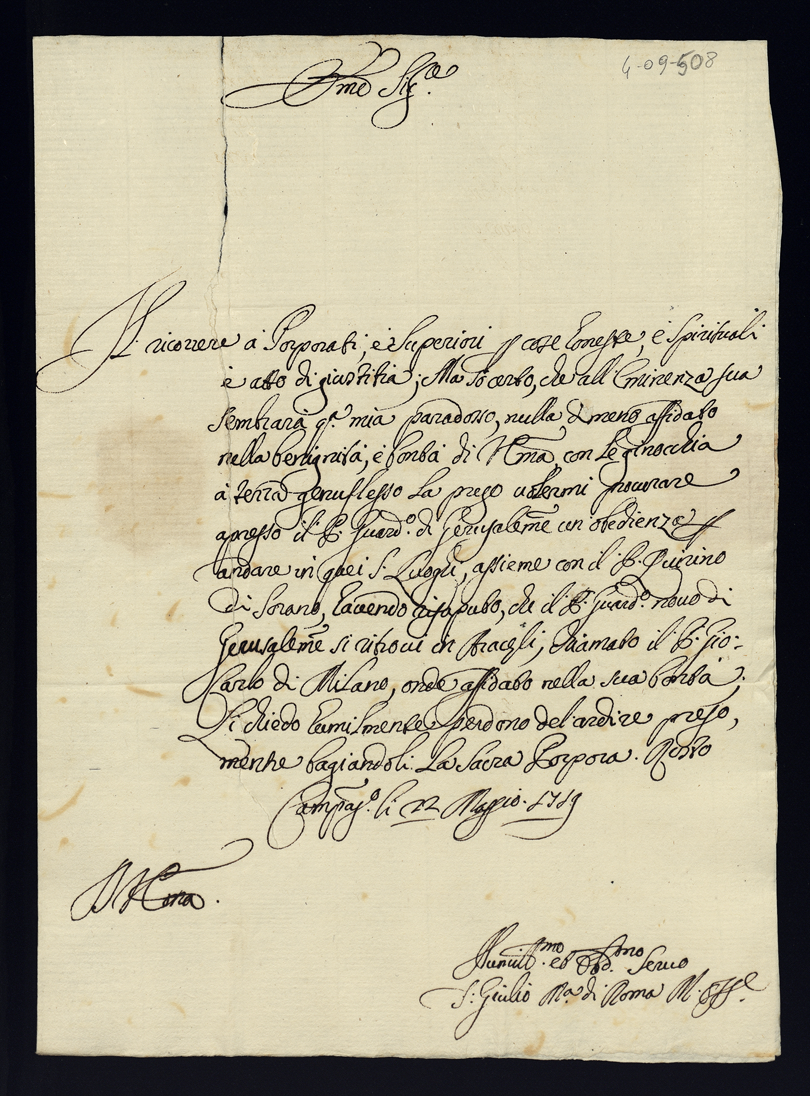 Emo Sig.re
4-09-508
Il ricorrere à Porporati, è Superiori p cose honeste, è Spirituali
è atto di giustitia; Ma so certo, che all'Eminenza sua
sembrarà q.a mia paradosso, nulla di meno affidato
nella benignità, è bontà di V. Ema con le ginocchia
à terra genuflesso la prego volermi procurare
apresso il P. Guard.o di Gerusaleme un obedienza p
andare in quei S. Luoghi, assieme con il P. Quirino
di Sorano, havendo risaputo, che il P. Guard.o novo di
Gerusaleme si ritrovi in Araceli, chiamato il P. Gio:
Carlo di Milano, onde affidato nella sua bontà
Li chiedo humilmente perdono del ardire preso,
mentre bagiandoli la Sacra Porpora. Resto
li 22 Maggio. 1719
D V Ema.
Humill.mo et Obd.mo Servo
F. Giulio M.a di Roma M. Oss.e